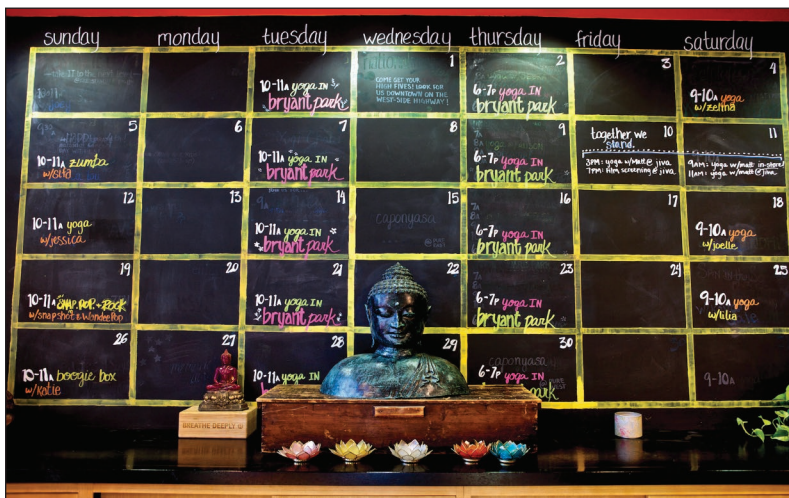 sunday monday tuesday wednesday thursday friday saturday
10-11A yoga IN
bryant park
1
COME GET YOUR
HIGH FIVES! LOOK FOR
US DOWNTOWN ON THE
WEST-SIDE HIGHWAY!
2
6-7P yoga IN
bryant park
3
4
9-10A yoga
w/zelma
5
10-11A zumba
6
7
10-11A yoga IN
bryant park
8
9
6-7P yoga IN
bryant park
10
together we
stand.
3PM: yoga w/matt @ jiva
7PM: film screening @ jiva
11
9AM: yoga w/matt in-store!
11AM: yoga w/matt @ jiva
12
10-11A yoga
w/jessica
13
14
10-11A yoga IN
bryant park
15
caponyasa
16
6-7P yoga IN
bryant park
17
18
9-10A yoga
w/joelle
19
10-11A SNAP. POP. + ROCK
w/snapshot & WonderPop
20
21
10-11A yoga IN
bryant park
22
23
6-7P yoga IN
bryant park
24
25
9-10A yoga
w/lilia
26
10-11A boogie box
w/katie
27
28
10-11A yoga IN
29
30
caponyasa
6-7P yoga IN
park
9-10A
BREATHE DEEPLY